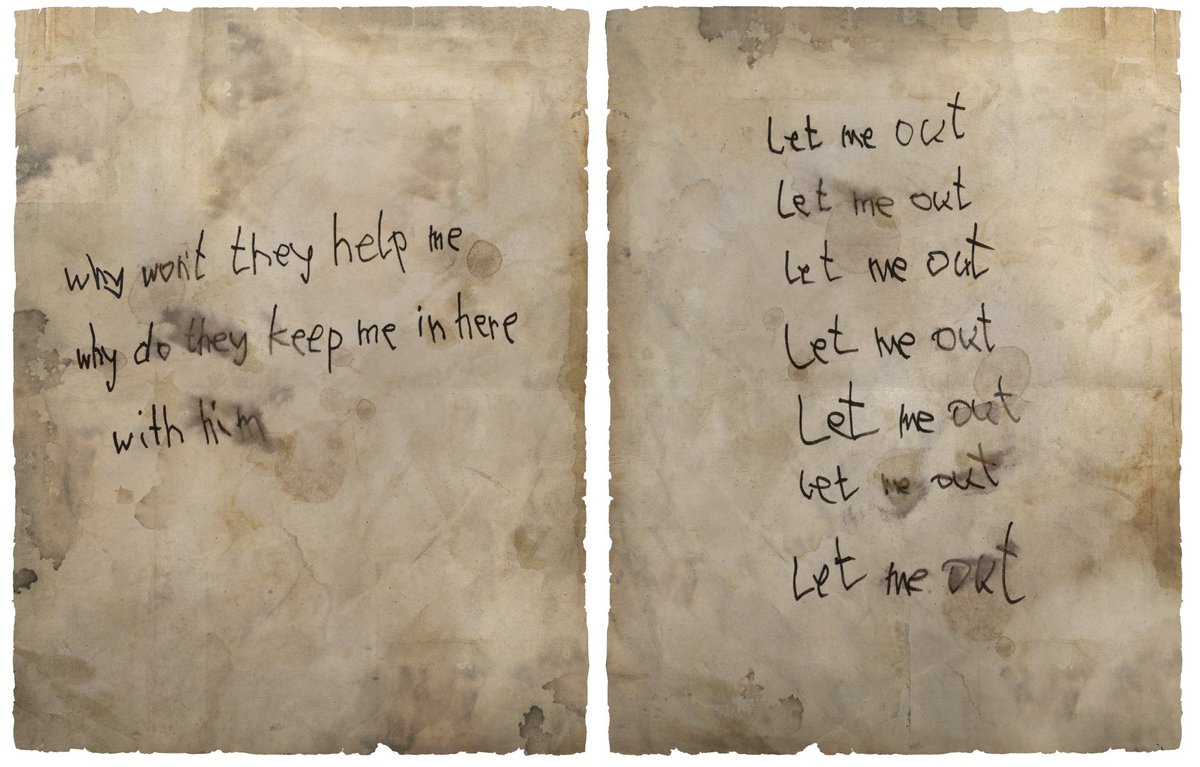 why won't they help me
why do they keep me in here
with him
Let me out
Let me out
Let me out
Let me out
Let me out
Let me out
Let me out